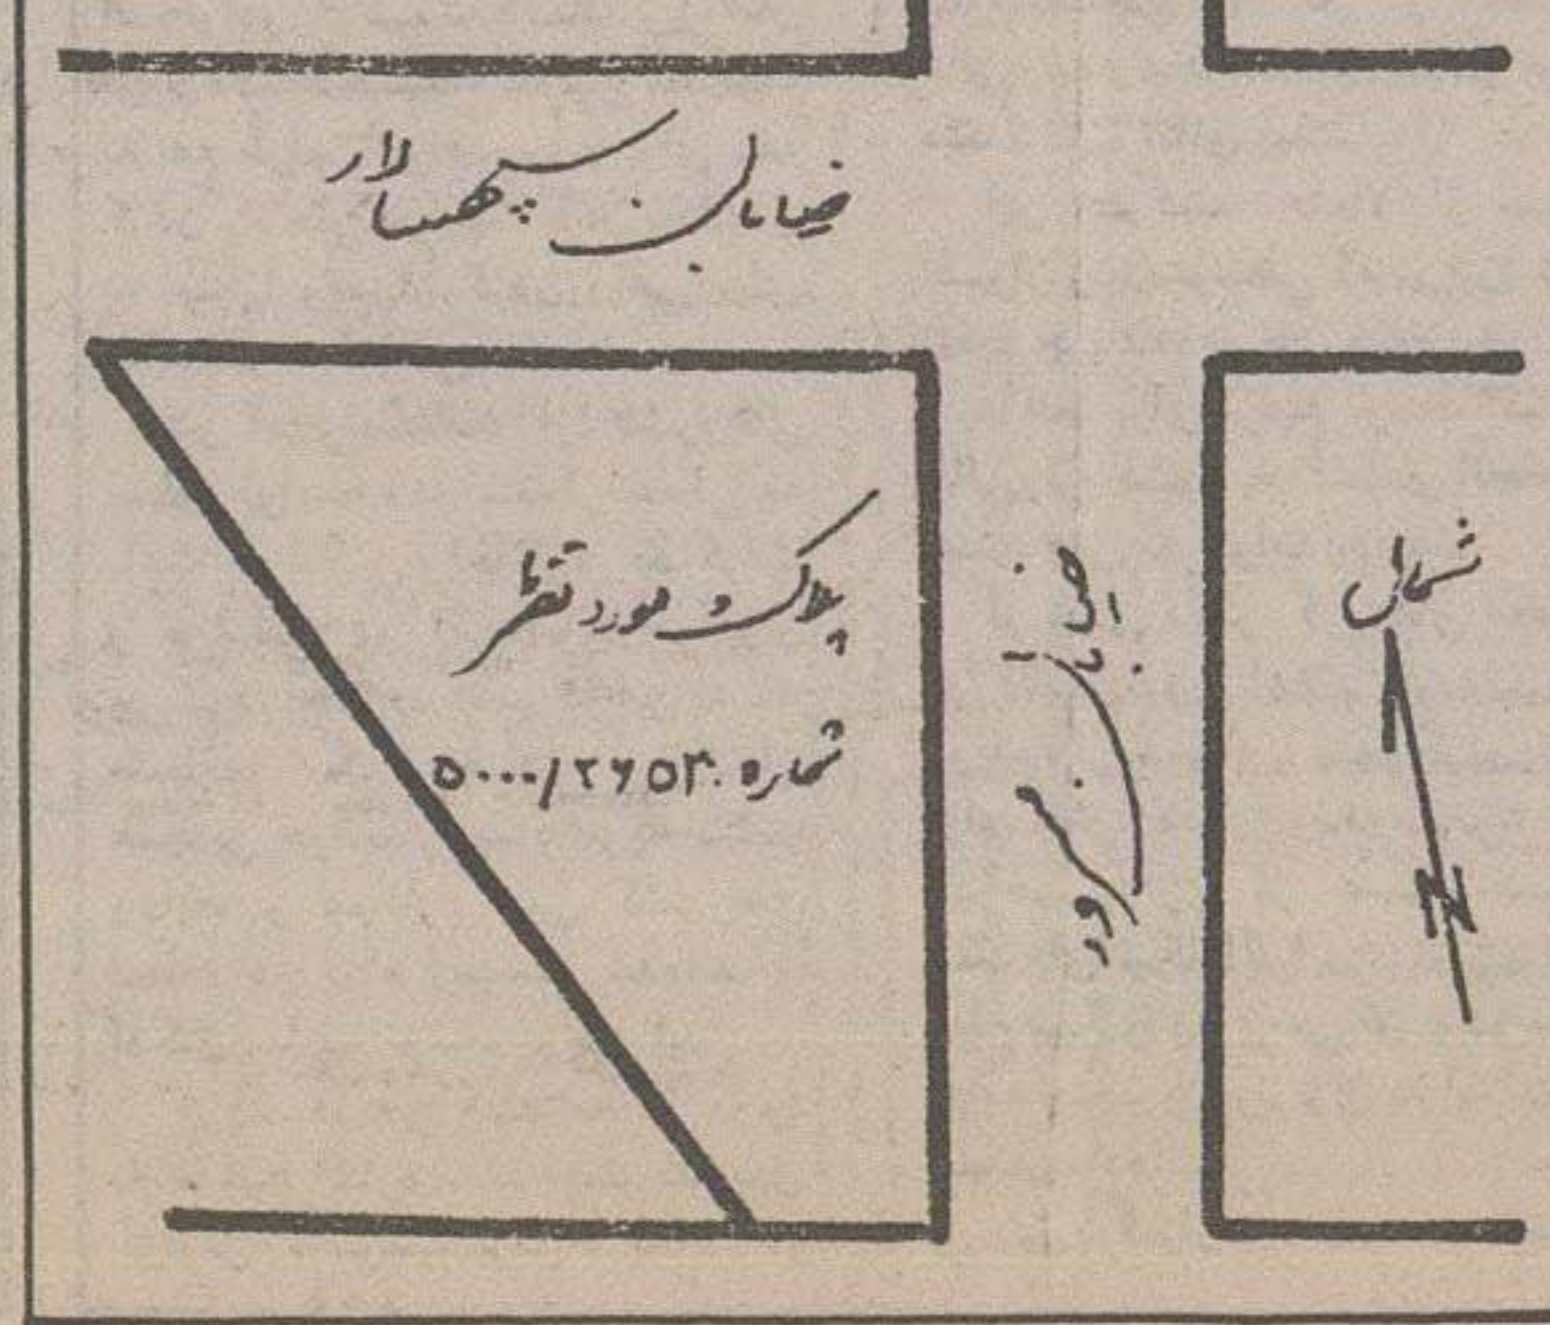 خیابان سپهسالار
پلاک مورد نظر
شماره ۵۰۰۰/۲۶۵۳
خیابان
شمالی
N